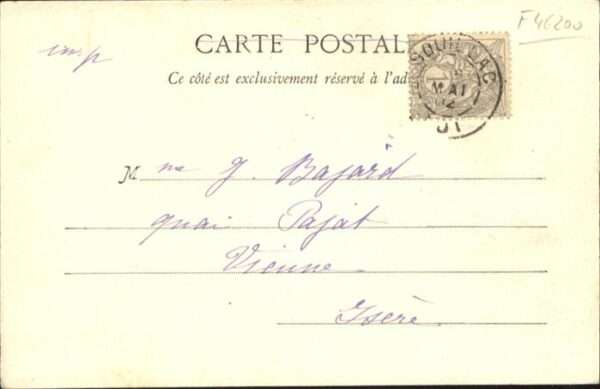 F 46200
imp
CARTE POSTAL
Ce côté est exclusivement réservé à l'ad
MAI
12
01
Mme J. Bajard
quai Pajot
Vienne
Isère